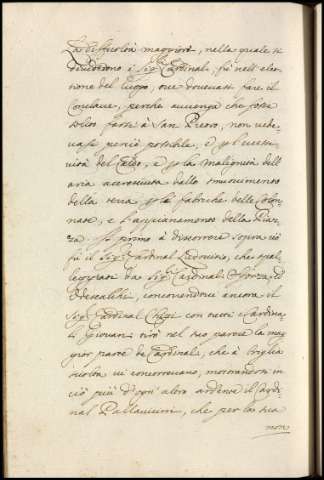 La difficoltà maggiore, nella quale si
dividerono i Sig.ri Cardinali, fu nell'elet-
tione del luogo, ove dovevasi fare il
Conclave, perche avvenga che fosse
solito farsi à San Pietro, non vede-
vasi perciò possibile, e p l'
vità del , e p la malignità dell'
aria accresciuta dallo smovimento
della terra p la fabriche delle Colon-
nate, e l'appianamento della Piaz-
za. Il primo à discorrere sopra ciò
fù il Sig.r Cardinal, che spal-
leggiato da Sig.ri Cardinali Sforza, et
Odescalchi, concorrendovi ancora il
Sig.r Cardinal Chigi con tutti i Cardina-
li Giovani tirò nel suo parere la mag-
gior parte de Cardinali, che à briglia
sciolta vi concorrevano, mostrandosi in
ciò più d'ogni altro ardente il Cardi-
nal Pallavicini, che per la sua
non